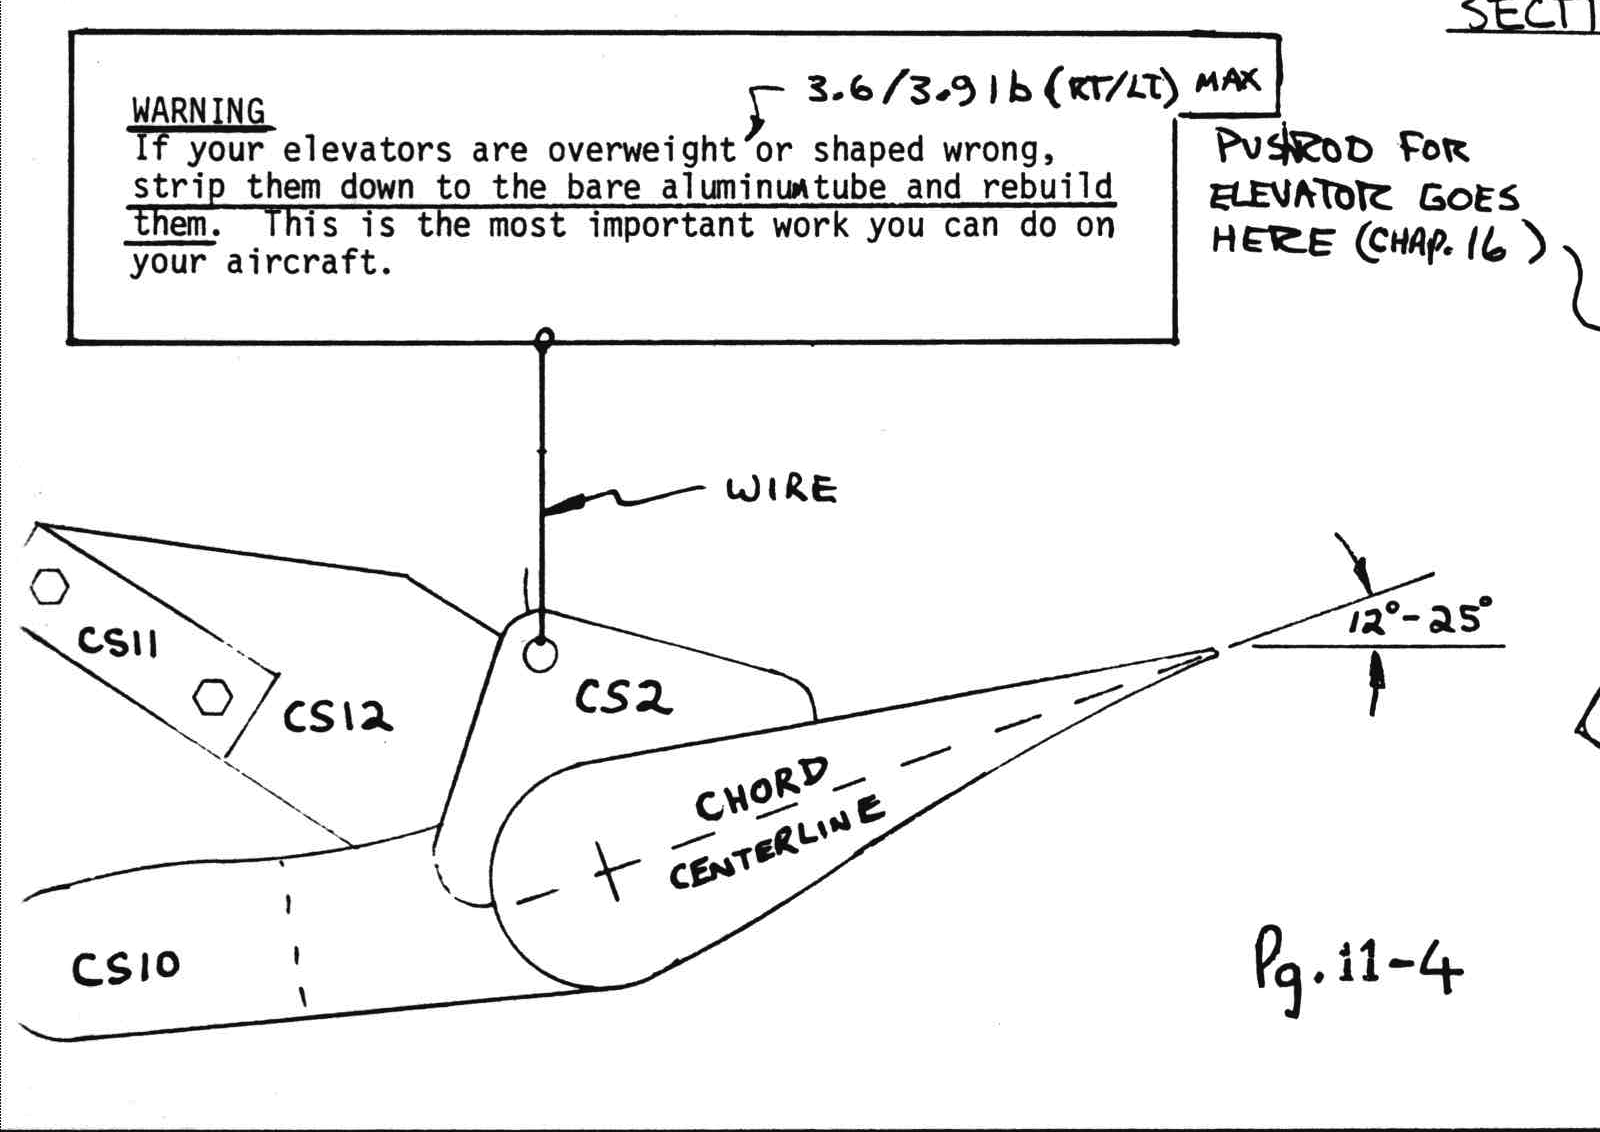 SECTI
3.6/3.9 lb (RT/LT) MAX
WARNING
If your elevators are overweight or shaped wrong,
strip them down to the bare aluminum tube and rebuild
them. This is the most important work you can do on
your aircraft.
PUSHROD FOR
ELEVATOR GOES
HERE (CHAP. 16)
WIRE
12°-25°
CS11
CS12
CS2
CHORD
CENTERLINE
CS10
Pg. 11-4